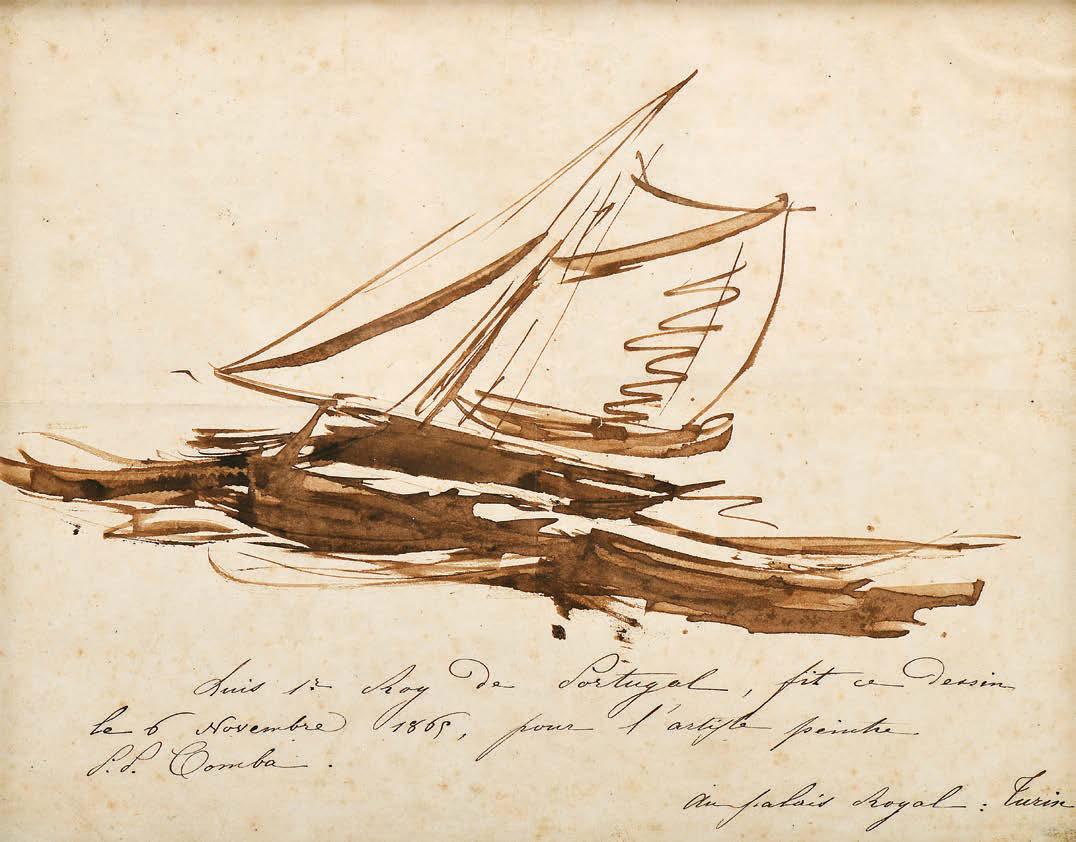 Luis 1er Roy de Portugal, fit ce dessin
le 6 Novembre 1865, pour l'artiste peintre
P. P. Comba.
Au palais Royal : Turin